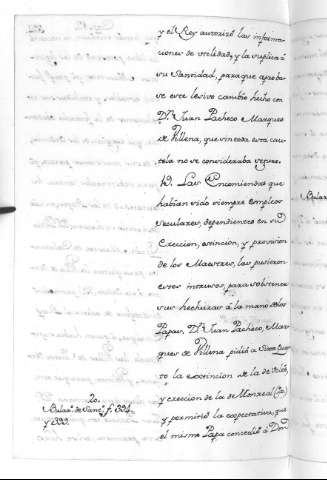 y el Rey autorizó las informa-
ciones de utilidad, y la suplica à
su Santidad, para que aproba-
se este lesivo cambio hecho con
Dn. Juan Pacheco Marques
de Villena, que sin toda esta cau-
tela no se consideraba seguro.
19. Las Encomiendas que
habian sido siempre empleos
seculares, dependientes en su
Ereccion, extincion, y provision
de los Maestres, las pusieron
estos intrusos, para sostener
sus hechuras à la mano de los
Papas, Dn. Juan Pacheco, Mar-
ques de Villena pidió a Sixto Quar-
to la extincion de la de Uclés,
y ereccion de la de Monreal (20)
y permitió la coopectativa, que
el mismo Papa concedió à Don
20.
Bular. de Sant. f. 394.
y 399.
Bular